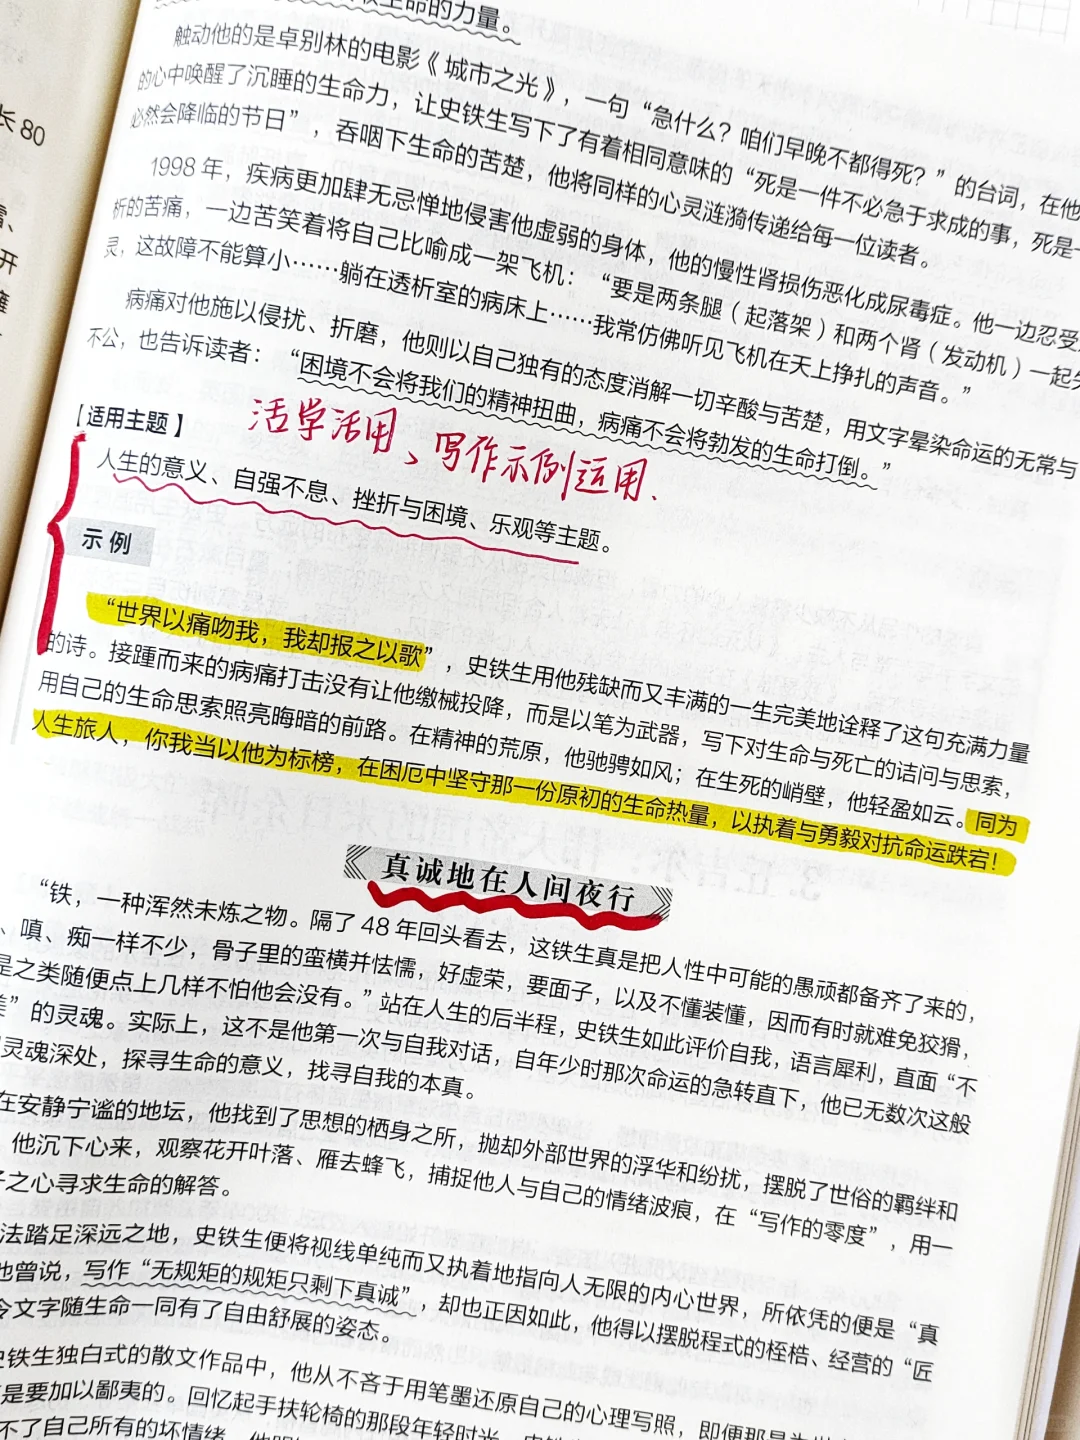 生命的力量。
触动他的是卓别林的电影《城市之光》，一句“急什么？咱们早晚不都得死？”的台词，在他
的心中唤醒了沉睡的生命力，让史铁生写下了有着相同意味的“死是一件不必急于求成的事，死是一
必然会降临的节日”，吞咽下生命的苦楚，他将同样的心灵涟漪传递给每一位读者。
1998年，疾病更加肆无忌惮地侵害他虚弱的身体，他的慢性肾损伤恶化成尿毒症。他一边忍受
析的苦痛，一边苦笑着将自己比喻成一架飞机：“要是两条腿（起落架）和两个肾（发动机）一起失
灵，这故障不能算小……躺在透析室的病床上……我常仿佛听见飞机在天上挣扎的声音。”
病痛对他施以侵扰、折磨，他则以自己独有的态度消解一切辛酸与苦楚，用文字晕染命运的无常与
不公，也告诉读者：“困境不会将我们的精神扭曲，病痛不会将勃发的生命打倒。”
【适用主题】
活学活用、写作示例运用、
人生的意义、自强不息、挫折与困境、乐观等主题。
示例
“世界以痛吻我，我却报之以歌”，史铁生用他残缺而又丰满的一生完美地诠释了这句充满力量
的诗。接踵而来的病痛打击没有让他缴械投降，而是以笔为武器，写下对生命与死亡的诘问与思索，
用自己的生命思索照亮晦暗的前路。在精神的荒原，他驰骋如风；在生死的峭壁，他轻盈如云。同为
人生旅人，你我当以他为标榜，在困厄中坚守那一份原初的生命热量，以执着与勇毅对抗命运跌宕！
真诚地在人间夜行
“铁，一种浑然未炼之物。隔了48年回头看去，这铁生真是把人性中可能的愚顽都备齐了来的，
、嗔、痴一样不少，骨子里的蛮横并怯懦，好虚荣，要面子，以及不懂装懂，因而有时就难免狡猾，
是之类随便点上几样不怕他会没有。”站在人生的后半程，史铁生如此评价自我，语言犀利，直面“不
美”的灵魂。实际上，这不是他第一次与自我对话，自年少时那次命运的急转直下，他已无数次这般
灵魂深处，探寻生命的意义，找寻自我的本真。
在安静宁谧的地坛，他找到了思想的栖身之所，抛却外部世界的浮华和纷扰，摆脱了世俗的羁绊和
，他沉下心来，观察花开叶落、雁去蜂飞，捕捉他人与自己的情绪波痕，在“写作的零度”，用一
子之心寻求生命的解答。
法踏足深远之地，史铁生便将视线单纯而又执着地指向人无限的内心世界，所依凭的便是“真
他曾说，写作“无规矩的规矩只剩下真诚”，却也正因如此，他得以摆脱程式的桎梏、经营的“匠
令文字随生命一同有了自由舒展的姿态。
史铁生独白式的散文作品中，他从不吝于用笔墨还原自己的心理写照，即便那是
是要加以鄙夷的。回忆起手扶轮椅的那段年轻时光，
不了自己所有的坏情绪
长 80
开